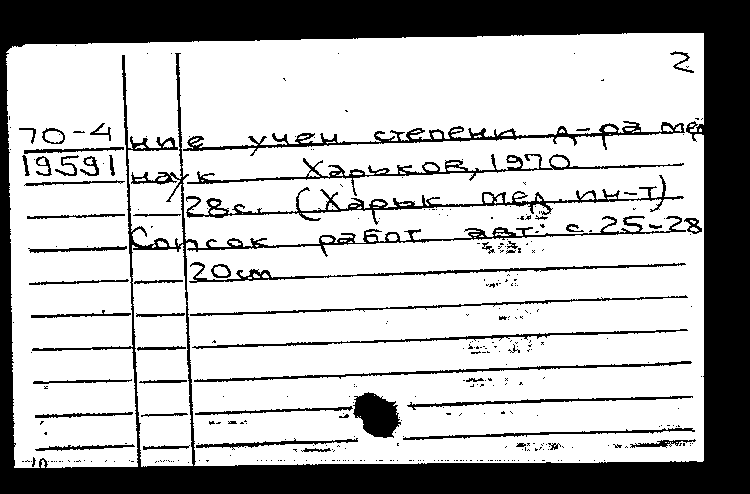 2
70-4 ние учен степени д-ра мед
19591 наук Харьков, 1970
28с. (Харьк мед. ин-т)
Список работ авт: с. 25-28
20см